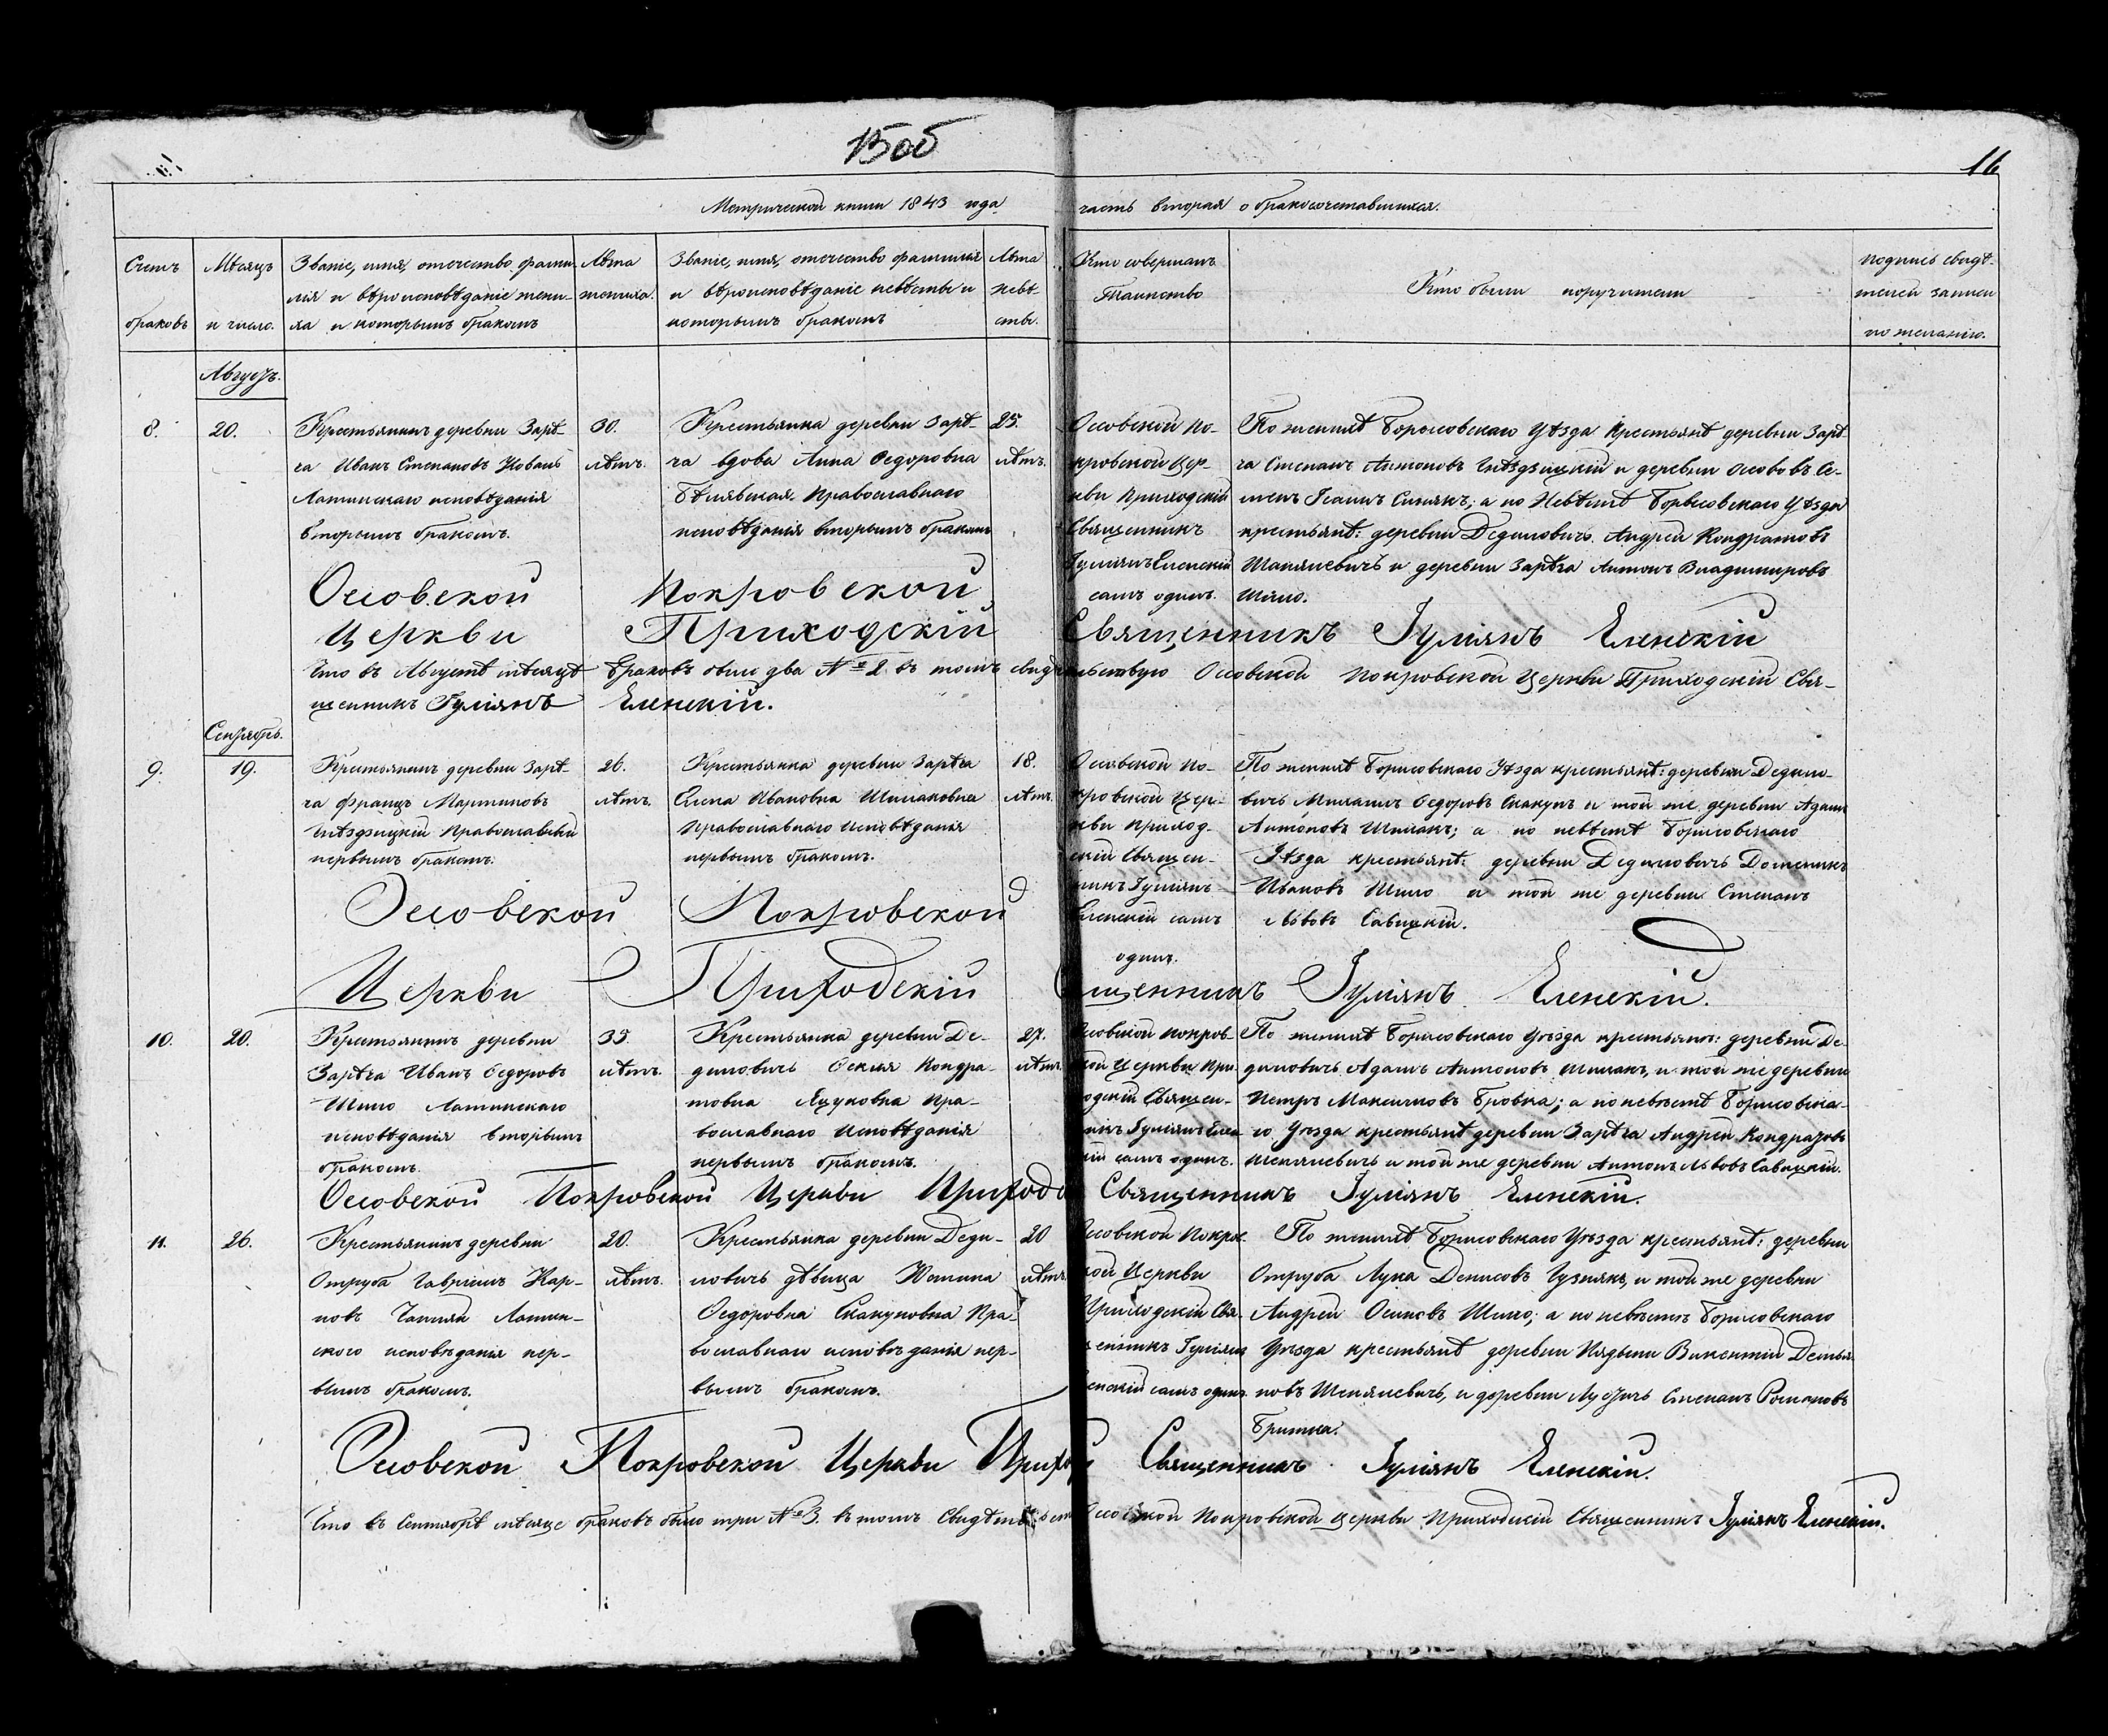 15об
16
Метрической книги 1843 года часть вторая о бракосочетавшихся.
Счетъ браковъ
Мѣсяцъ и число.
Званіе, имя, отечество, фами-
лія и вѣроисповѣданіе жени-
ха и которымъ бракомъ
Лѣта
жениха.
Званіе, имя, отечество фамилія
и вѣроисповѣданіе невѣсты и
которымъ бракомъ
Лѣта
невѣ-
сты.
Кто совершалъ
Таинство
Кто были поручители
Подпись свидѣ-
телей записи
по желанію.
Августъ.
8.
20.
Крестьянинъ деревни Зарѣ-
ча Иванъ Степановъ Коваль
Латинскаго исповѣданія
вторымъ бракомъ.
30.
лѣтъ.
Крестьянка деревни Зарѣ-
ча вдова Анна Ѳедоровна
Бѣлявская Православнаго
исповѣданія вторымъ бракомъ
25.
лѣтъ.
Оссовской По-
кровской Цер-
кви Приходскій
Священникъ
Гуліянъ Еленскій
самъ одинъ.
По женихѣ Борисовскаго Уѣзда Крестьянѣ деревни Зарѣ-
ча Степанъ Антоновъ Гнѣздзицкій и деревни Ососовъ Се-
менъ Іоаннъ Синякъ; а по Невѣстѣ Борисовскаго Уѣзда
крестьянѣ: деревни Дедиловичъ Андрей Кондратовъ
Шанялевичъ и деревни Зарѣча Антонъ Владимировъ
Шило.
Оссовской Покровской
Церкви Приходскій Священникъ Гуліянъ Еленскій
Что въ Августѣ мѣсяцѣ браковъ было два № 2 въ томъ свидѣтельствую Оссовской Покровской Церкви Приходскій Свя-
щенникъ Гуліянъ Еленскій.
Сентябрь.
9.
19.
Крестьянинъ деревни Зарѣ-
ча Францъ Мартиновъ
Гнѣздзицкій Православный
первымъ бракомъ.
26.
лѣтъ.
Крестьянка деревни Зарѣча
Елена Ивановна Шиманковна
Православнаго Исповѣданія
первымъ бракомъ.
18.
лѣтъ.
Оссовской По-
кровской Цер-
кви Приход-
скій Священ-
никъ Гуліянъ
Еленскій самъ
одинъ.
По женихѣ Борисовскаго Уѣзда крестьянѣ: деревни Дедило-
вичъ Михаилъ Ѳедоровъ Скакунъ и той же деревни Адамъ
Антоновъ Шиманъ; а по невѣстѣ Борисовскаго
Уѣзда крестьянѣ: деревни Дедиловичъ Доминикъ
Ивановъ Шило и той же деревни Степанъ
Львовъ Савицкій.
Оссовской Покровской
Церкви Приходскій Священникъ Гуліянъ Еленскій.
10.
20.
Крестьянинъ деревни
Зарѣча Иванъ Ѳедоровъ
Шило Латинскаго
исповѣданія вторымъ
бракомъ.
35.
лѣтъ.
Крестьянка деревни Де-
диловичъ Ѳекля Кондра-
товна Яцуковна Пра-
вославнаго Исповѣданія
первымъ бракомъ.
27.
лѣтъ.
Оссовской Покров-
кой Церкви При-
ходскій Священ-
никъ Гуліянъ Елен-
скій самъ одинъ.
По женихѣ Борисовскаго Уѣзда крестьянѣ: деревни Де-
диловичъ Адамъ Антоновъ Шиманъ, и той же деревни
Петръ Максимовъ Бровка; а по невѣстѣ Борисовска-
го Уѣзда крестьянѣ деревни Зарѣча Андрей Кондратовъ
Шенялевичъ и той же деревни Антонъ Львовъ Савицкій.
Оссовской Покровской Церкви Приход Священникъ Гуліянъ Еленскій.
11.
26.
Крестьянинъ деревни
Отруба Гавріилъ Кар-
повъ Латин-
ского исповѣданія пер-
вымъ бракомъ.
20.
лѣтъ.
Крестьянка деревни Деди-
ловичъ дѣвица Юстина
Ѳедоровна Скакуновна Пра-
вославнаго исповѣданія пер-
вымъ бракомъ.
20
лѣтъ
Оссовской Покров-
кой Церкви
Приходскій Свя-
щенникъ Гуліянъ
Еленскій самъ одинъ.
По женихѣ Борисовскаго Уѣзда крестьянѣ: деревни
Отруба Лука Денисовъ Гузнякъ, и той же деревни
Андрей Осиповъ Шило; а по невѣстѣ Борисовскаго
Уѣзда крестьянѣ деревни Викентій Демья-
новъ Шенялевичъ, и деревни Степанъ Романовъ
Оссовской Покровской Церкви Приход Священникъ Гуліянъ Еленскій.
Что въ Сентябрѣ мѣсяце браковъ было три № 3. въ томъ Свидѣтельст Оссовской Покровской церкви Приходскій Священникъ Гуліянъ Еленскій.